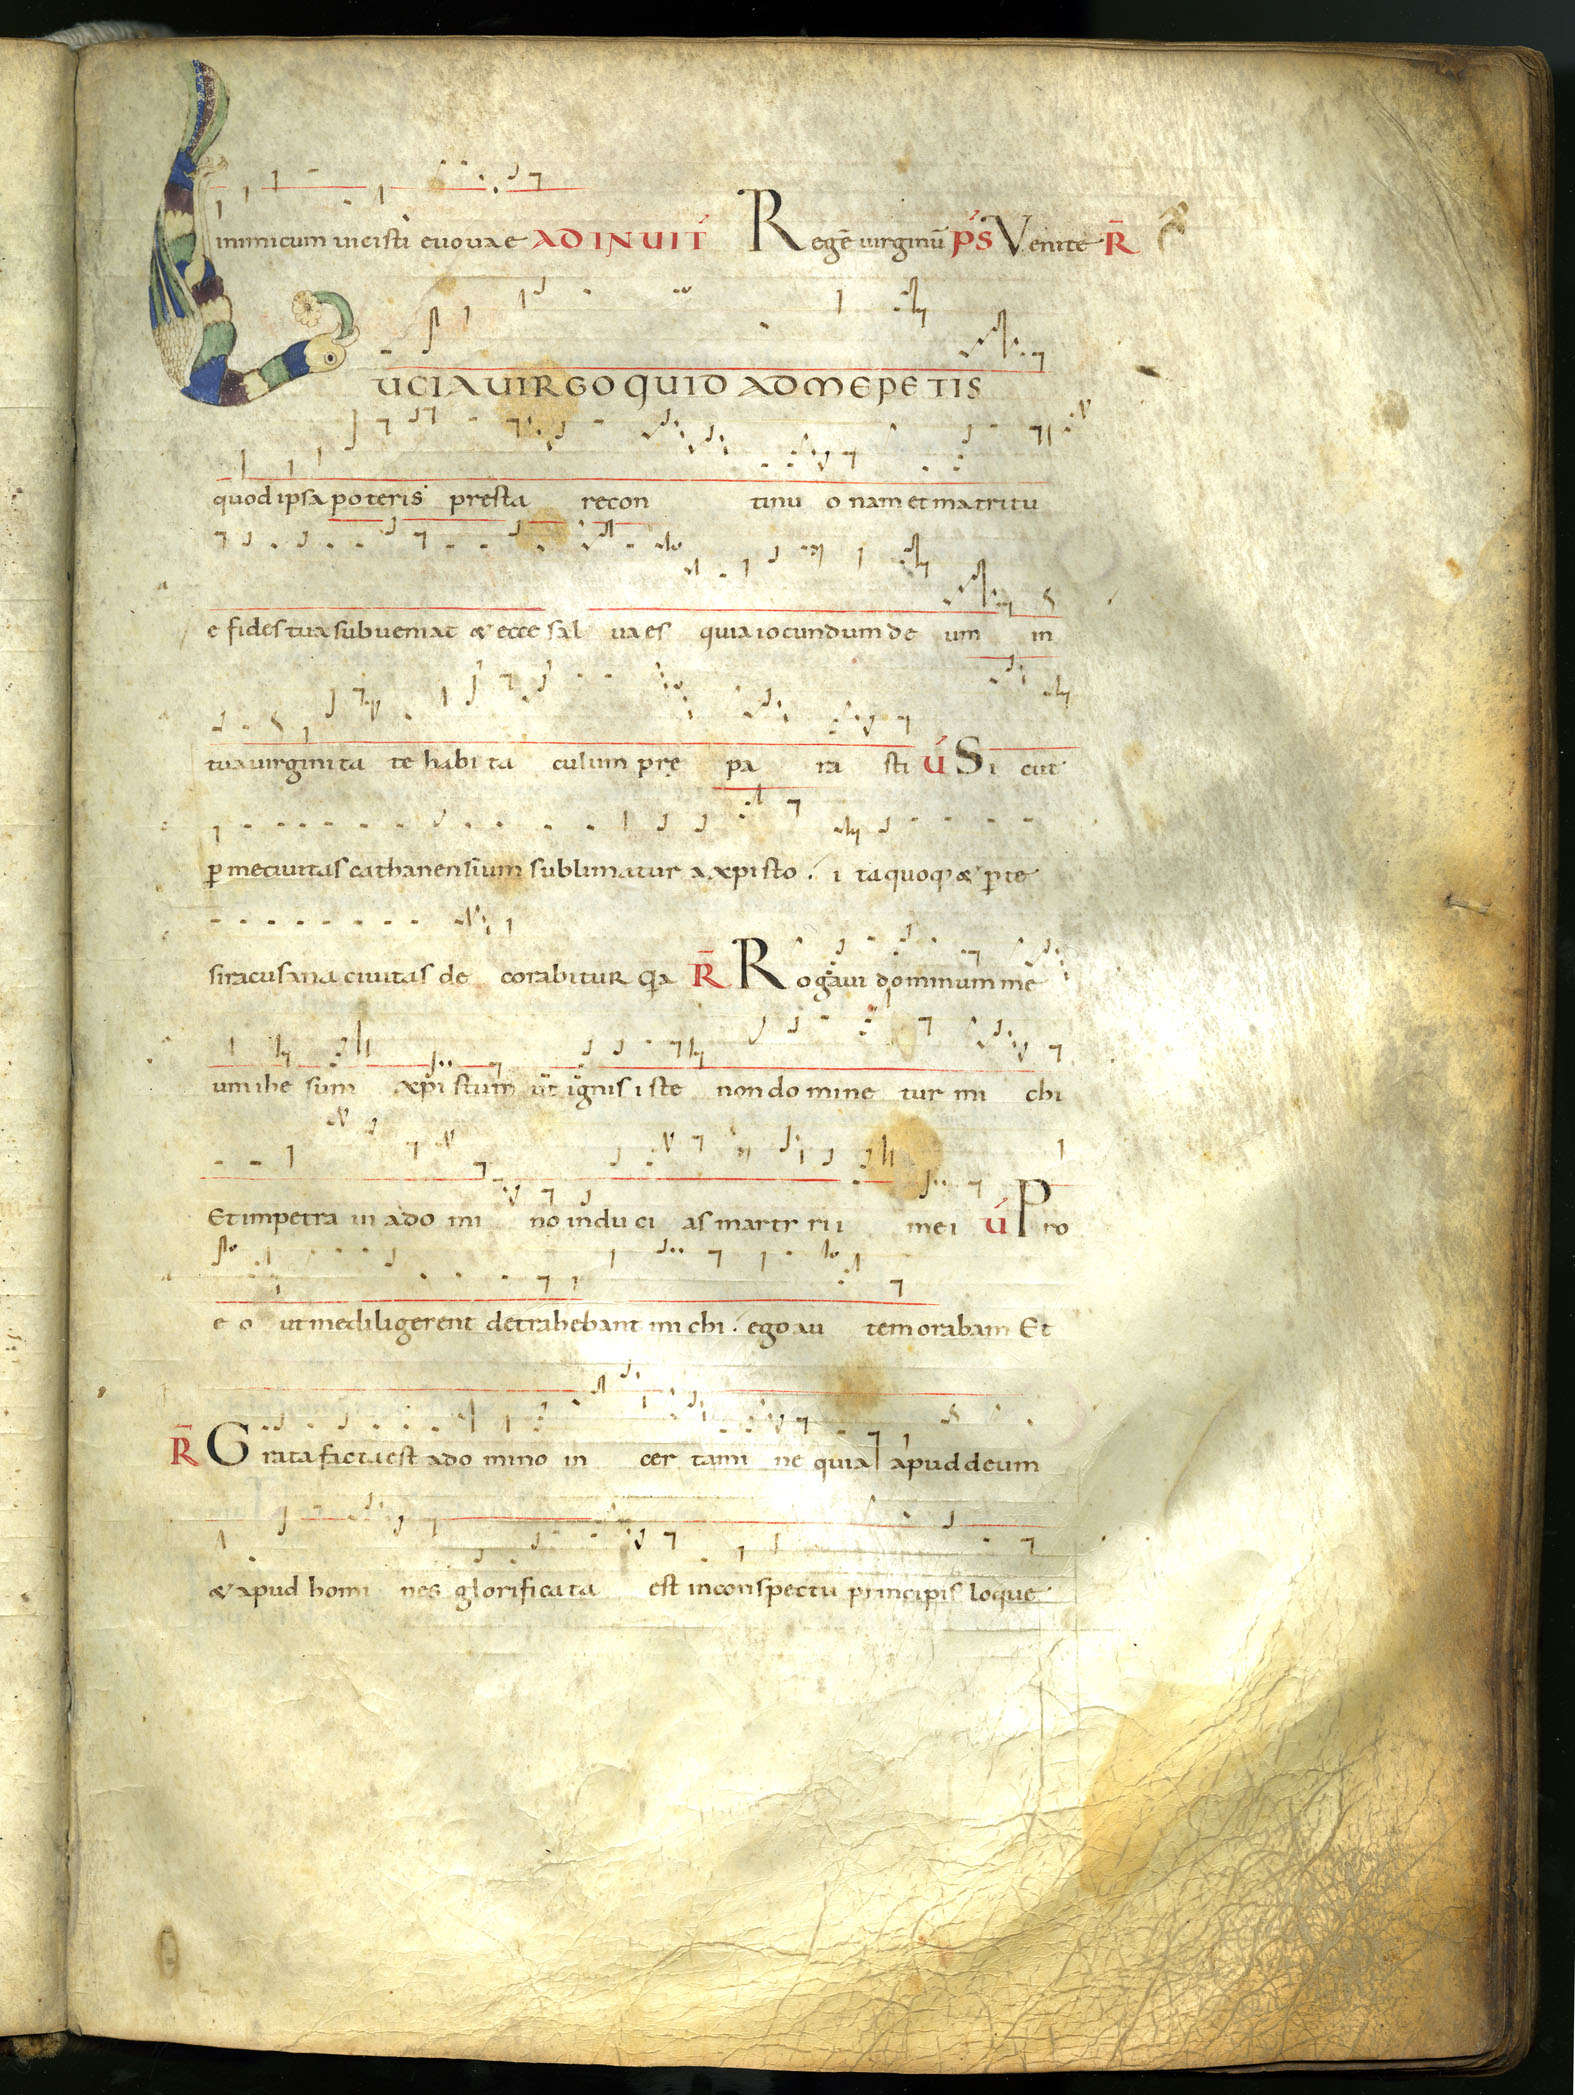 inimicum vicisti evovae ADINVIT Regē virginū p̄s Venite R̄
LUCIA VIRGO QUID AD ME PETIS
quod ipsa poteris presta re con tinu o nam et matri tu
e fides tua subveniat & ecce sal va es quia iocundum de um in
tua virginita te habi ta culum prę pa ra sti V́ Si cut
p̄ me civitas cathanensium sublimatur a xpisto. i ta quoq; & p̄ te
siracusana civitas de corabitur q̄a R̄ Rogavi dominum me
um ihe sum xpi stum ut ignis i ste non do mine tur mi chi
Et impetra vi a do mi no indu ci as martr rii mei V́ Pro
e o ut me diligerent detrahebant mi chi. ego au tem orabam Et
R̄ Grata facta est a do mino in cer tami ne quia apud deum
& apud homi nes glorifica ta est in conspectu principis loque